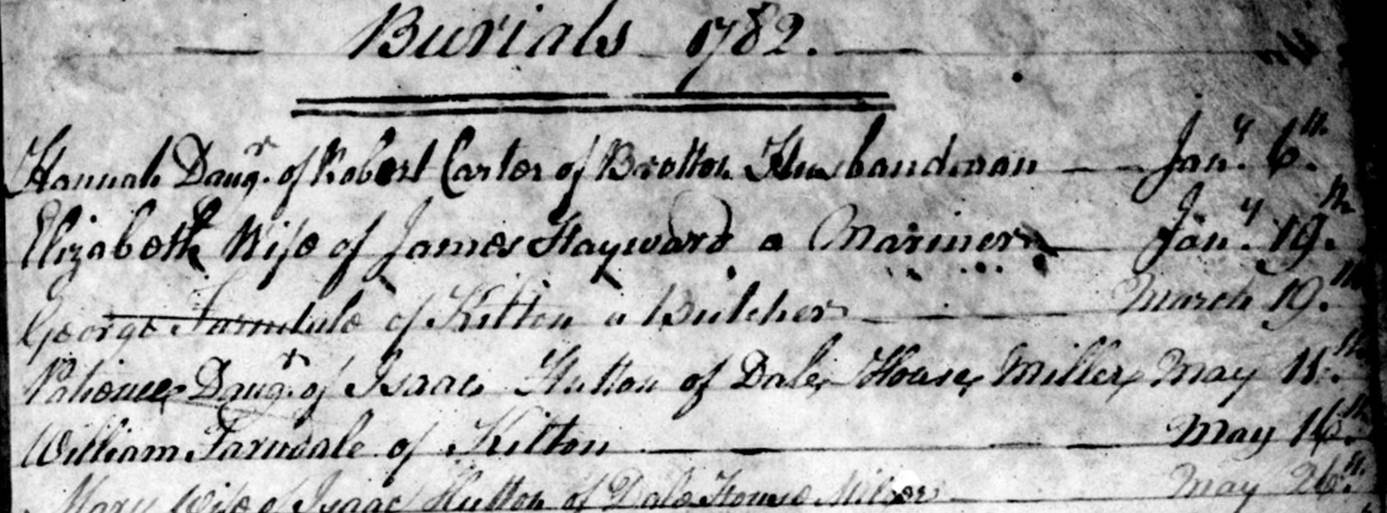 Burials 1782.
Hannah Daugr. of Robert Carter of Brotton Husbandman Jany. 6th.
Elizabeth Wife of James Hayward a Mariner Jany. 19th.
George Farndale of Kilton a Butcher March 19th.
Patience Daugr. of Isaac Hutton of Dale House Miller May 11th.
William Farndale of Kilton May 16th.
Mary Wife of Isaac Hutton of Dale House Miller May 26th.